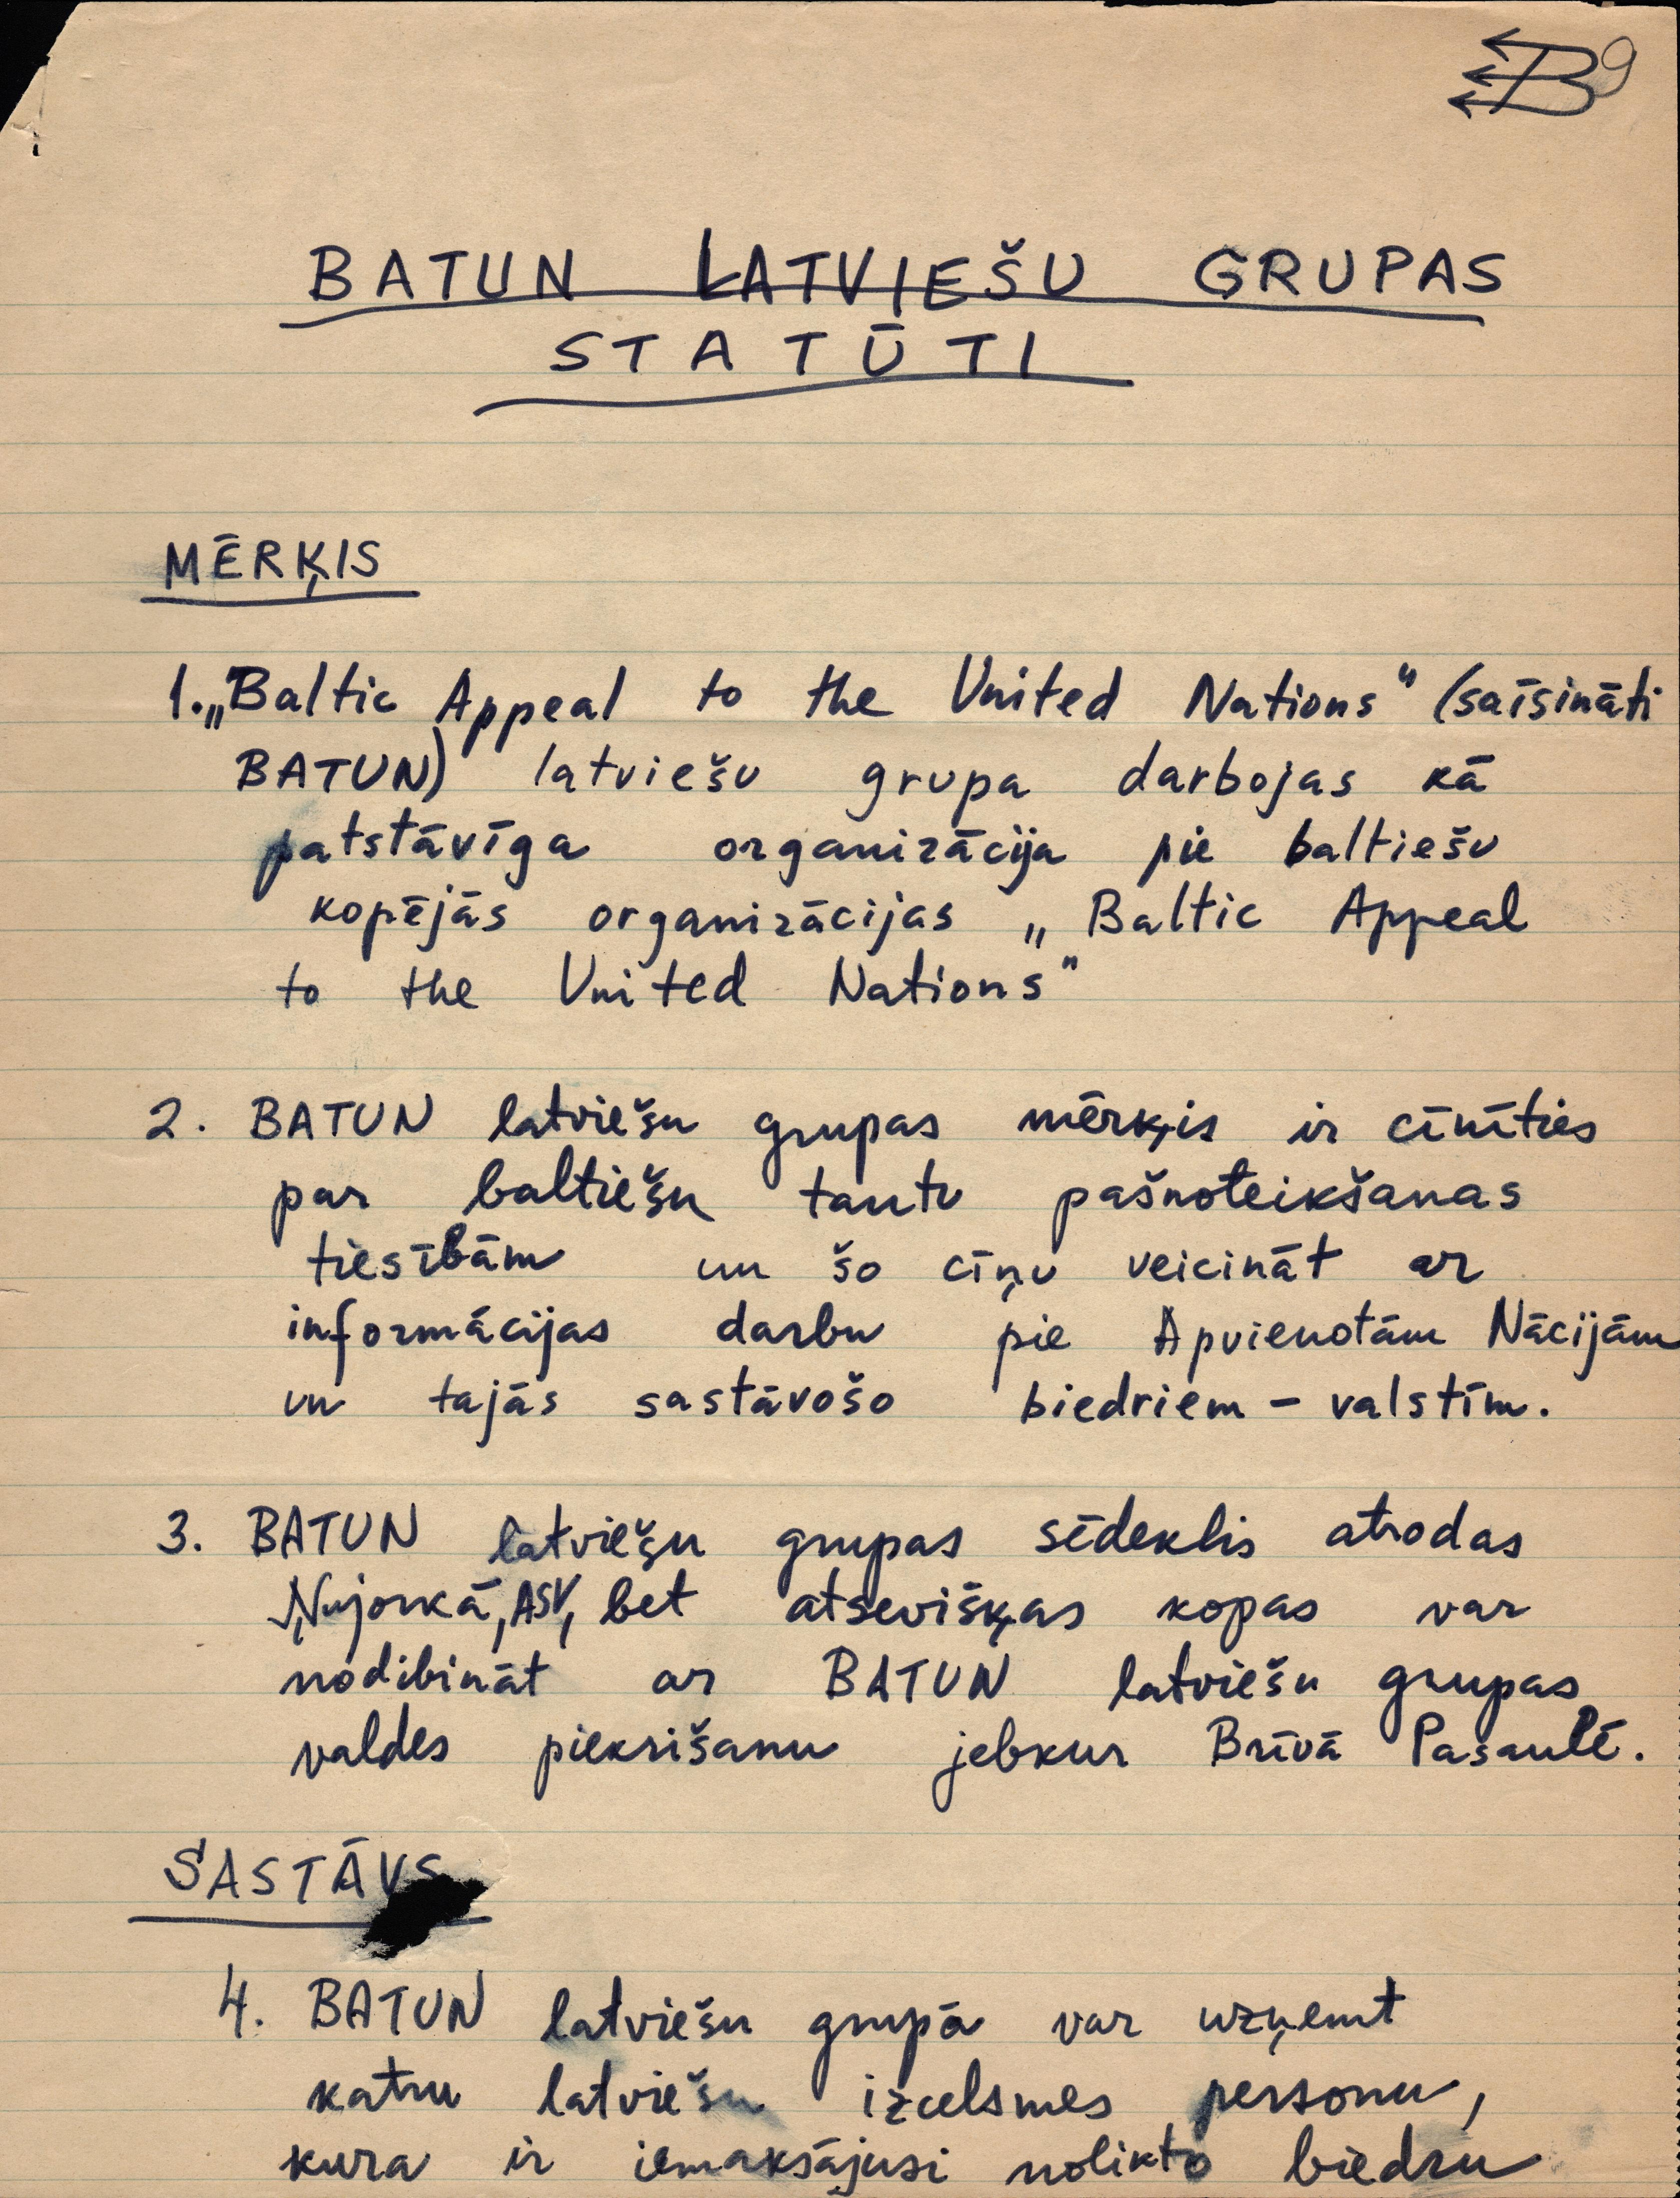 B9
BATUN LATVIEŠU GRUPAS
STATŪTI
MĒRĶIS
1. „Baltic Appeal to the United Nations" (saīsināti
BATUN) latviešu grupa darbojas kā
patstāvīga organizācija pie baltiešu
kopējās organizācijas „Baltic Appeal
to the United Nations"
2. BATUN latviešu grupas mērķis ir cīnīties
par baltiešu tautu pašnoteikšanas
tiesībām un šo cīņu veicināt ar
informācijas darbu pie Apvienotām Nācijām
un tajās sastāvošo biedriem – valstīm.
3. BATUN latviešu grupas sēdeklis atrodas
Ņujorkā, ASV, bet atsevišķas kopas var
nodibināt ar BATUN latviešu grupas
valdes piekrišanu jebkur Brīvā Pasaulē.
SASTĀVS
4. BATUN latviešu grupā var uzņemt
katru latviešu izcelsmes personu,
kura ir iemaksājusi nolikto biedru